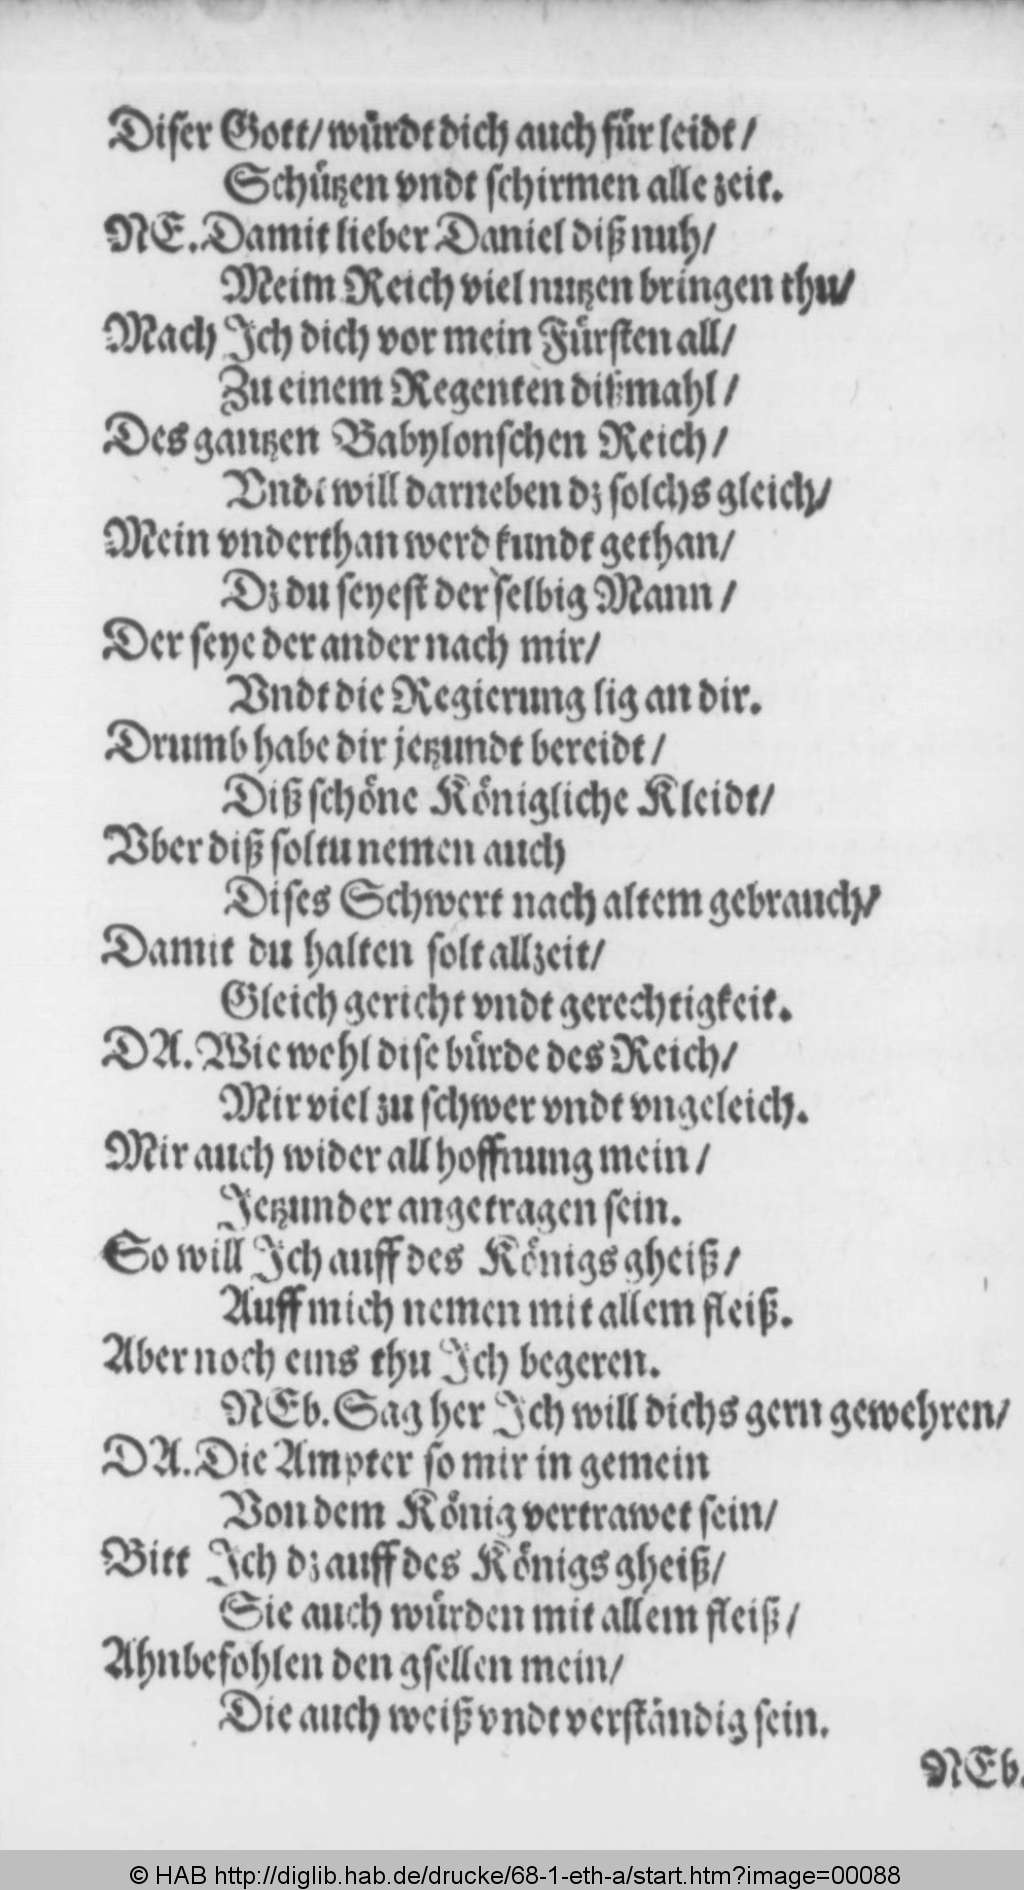 Diser Gott/ würdt dich auch für leidt/
Schützen vndt schirmen alle zeit.
NE. Damit lieber Daniel diß nuh/
Meim Reich viel nutzen bringen thu/
Mach Ich dich vor mein Fürsten all/
Zu einem Regenten dißmahl/
Des gantzen Babylonschen Reich/
Vndt will darneben dz solchs gleich/
Mein vnderthan werd kundt gethan/
Dz du seyest der selbig Mann/
Der seye der ander nach mir/
Vndt die Regierung lig an dir.
Drumb habe dir jetzundt bereidt/
Diß schöne Königliche Kleidt/
Vber diß soltu nemen auch
Dises Schwert nach altem gebrauch/
Damit du halten solt allzeit/
Gleich gericht vndt gerechtigkeit.
DA. Wie wohl dise bürde des Reich/
Mir viel zu schwer vndt vngeleich.
Mir auch wider all hoffnung mein/
Jetzunder angetragen sein.
So will Ich auff des Königs gheiß/
Auff mich nemen mit allem fleiß.
Aber noch eins thu Ich begeren.
NEb. Sag her Ich will dichs gern gewehren/
DA. Die Ampter so mir in gemein
Von dem König vertrawet sein/
Bitt Ich dz auff des Königs gheiß/
Sie auch würden mit allem fleiß/
Ahnbefohlen den gsellen mein/
Die auch weiß vndt verständig sein.
NEb.
© HAB http://diglib.hab.de/drucke/68-1-eth-a/start.htm?image=00088